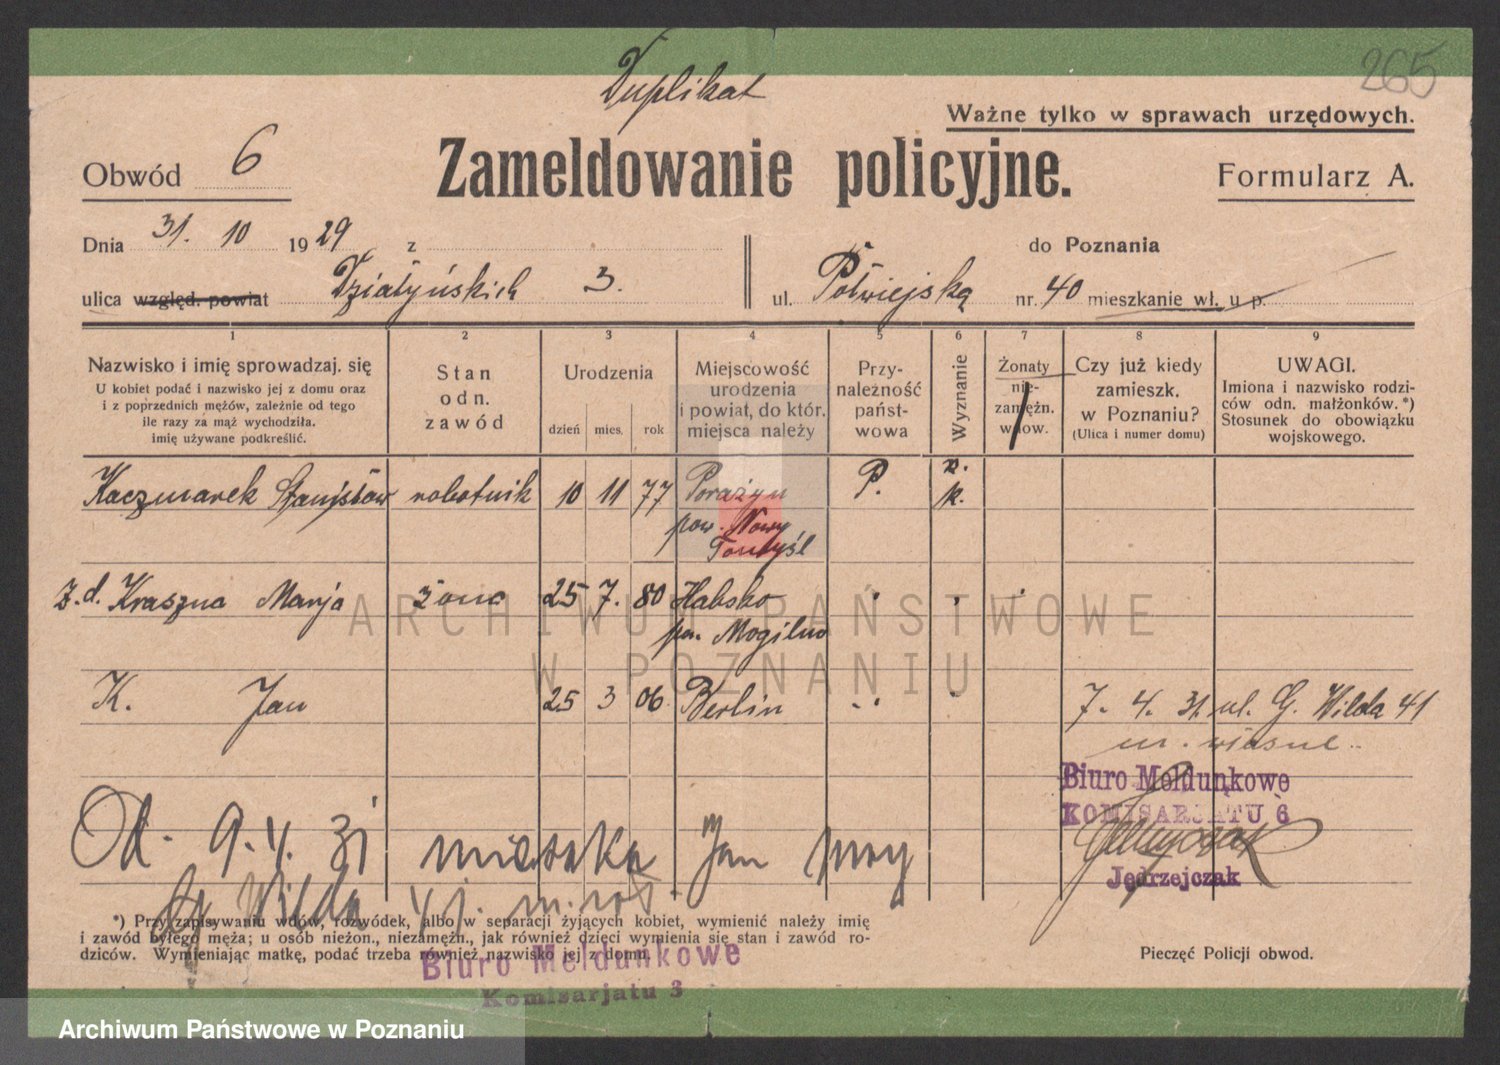 265
Duplikat
Ważne tylko w sprawach urzędowych.
Obwód 6
Zameldowanie policyjne.
Formularz A.
Dnia 31. 10 1929 z
do Poznania
ulica względ. powiat Działyńskich 3.
ul. Półwiejską nr. 40 mieszkanie wł. u p.
1 2 3 4 5 6 7 8 9
Nazwisko i imię sprowadzaj. się
U kobiet podać i nazwisko jej z domu oraz
i z poprzednich mężów, zależnie od tego
ile razy za mąż wychodziła.
imię używane podkreślić.
Stan
odn.
zawód
Urodzenia
dzień mies. rok
Miejscowość
urodzenia
i powiat, do któr.
miejsca należy
Przy-
należność
państ-
wowa
Wyznanie
Żonaty
nie-
zamężn.
wdow.
Czy już kiedy
zamieszk.
w Poznaniu?
(Ulica i numer domu)
UWAGI.
Imiona i nazwisko rodzi-
ców odn. małżonków.*)
Stosunek do obowiązku
wojskowego.
Kaczmarek Stanisław robotnik 10 11 77 Porażyn P. r. k.
pow. Nowy
Tomyśl
z.d. Kraszna Marja żona 25 7. 80 Habsko
pow. Mogilno
K. Jan 25 3 06 Berlin 7. 4. 31. ul. G. Wilda 41
m. własne
Biuro Meldunkowe
KOMISARJATU 6
Jędrzejczak
Od 9.4.31 mieszka Jan przy
G. Wilda 41.
*) Przy zapisywaniu wdów, rozwódek, albo w separacji żyjących kobiet, wymienić należy imię
i zawód byłego męża; u osób nieżon., niezamężn., jak również dzieci wymienia się stan i zawód ro-
dziców. Wymieniając matkę, podać trzeba również nazwisko jej z domu.
Biuro Meldunkowe
Komisarjatu 3
Pieczęć Policji obwod.
ARCHIWUM PAŃSTWOWE
W POZNANIU
Archiwum Państwowe w Poznaniu